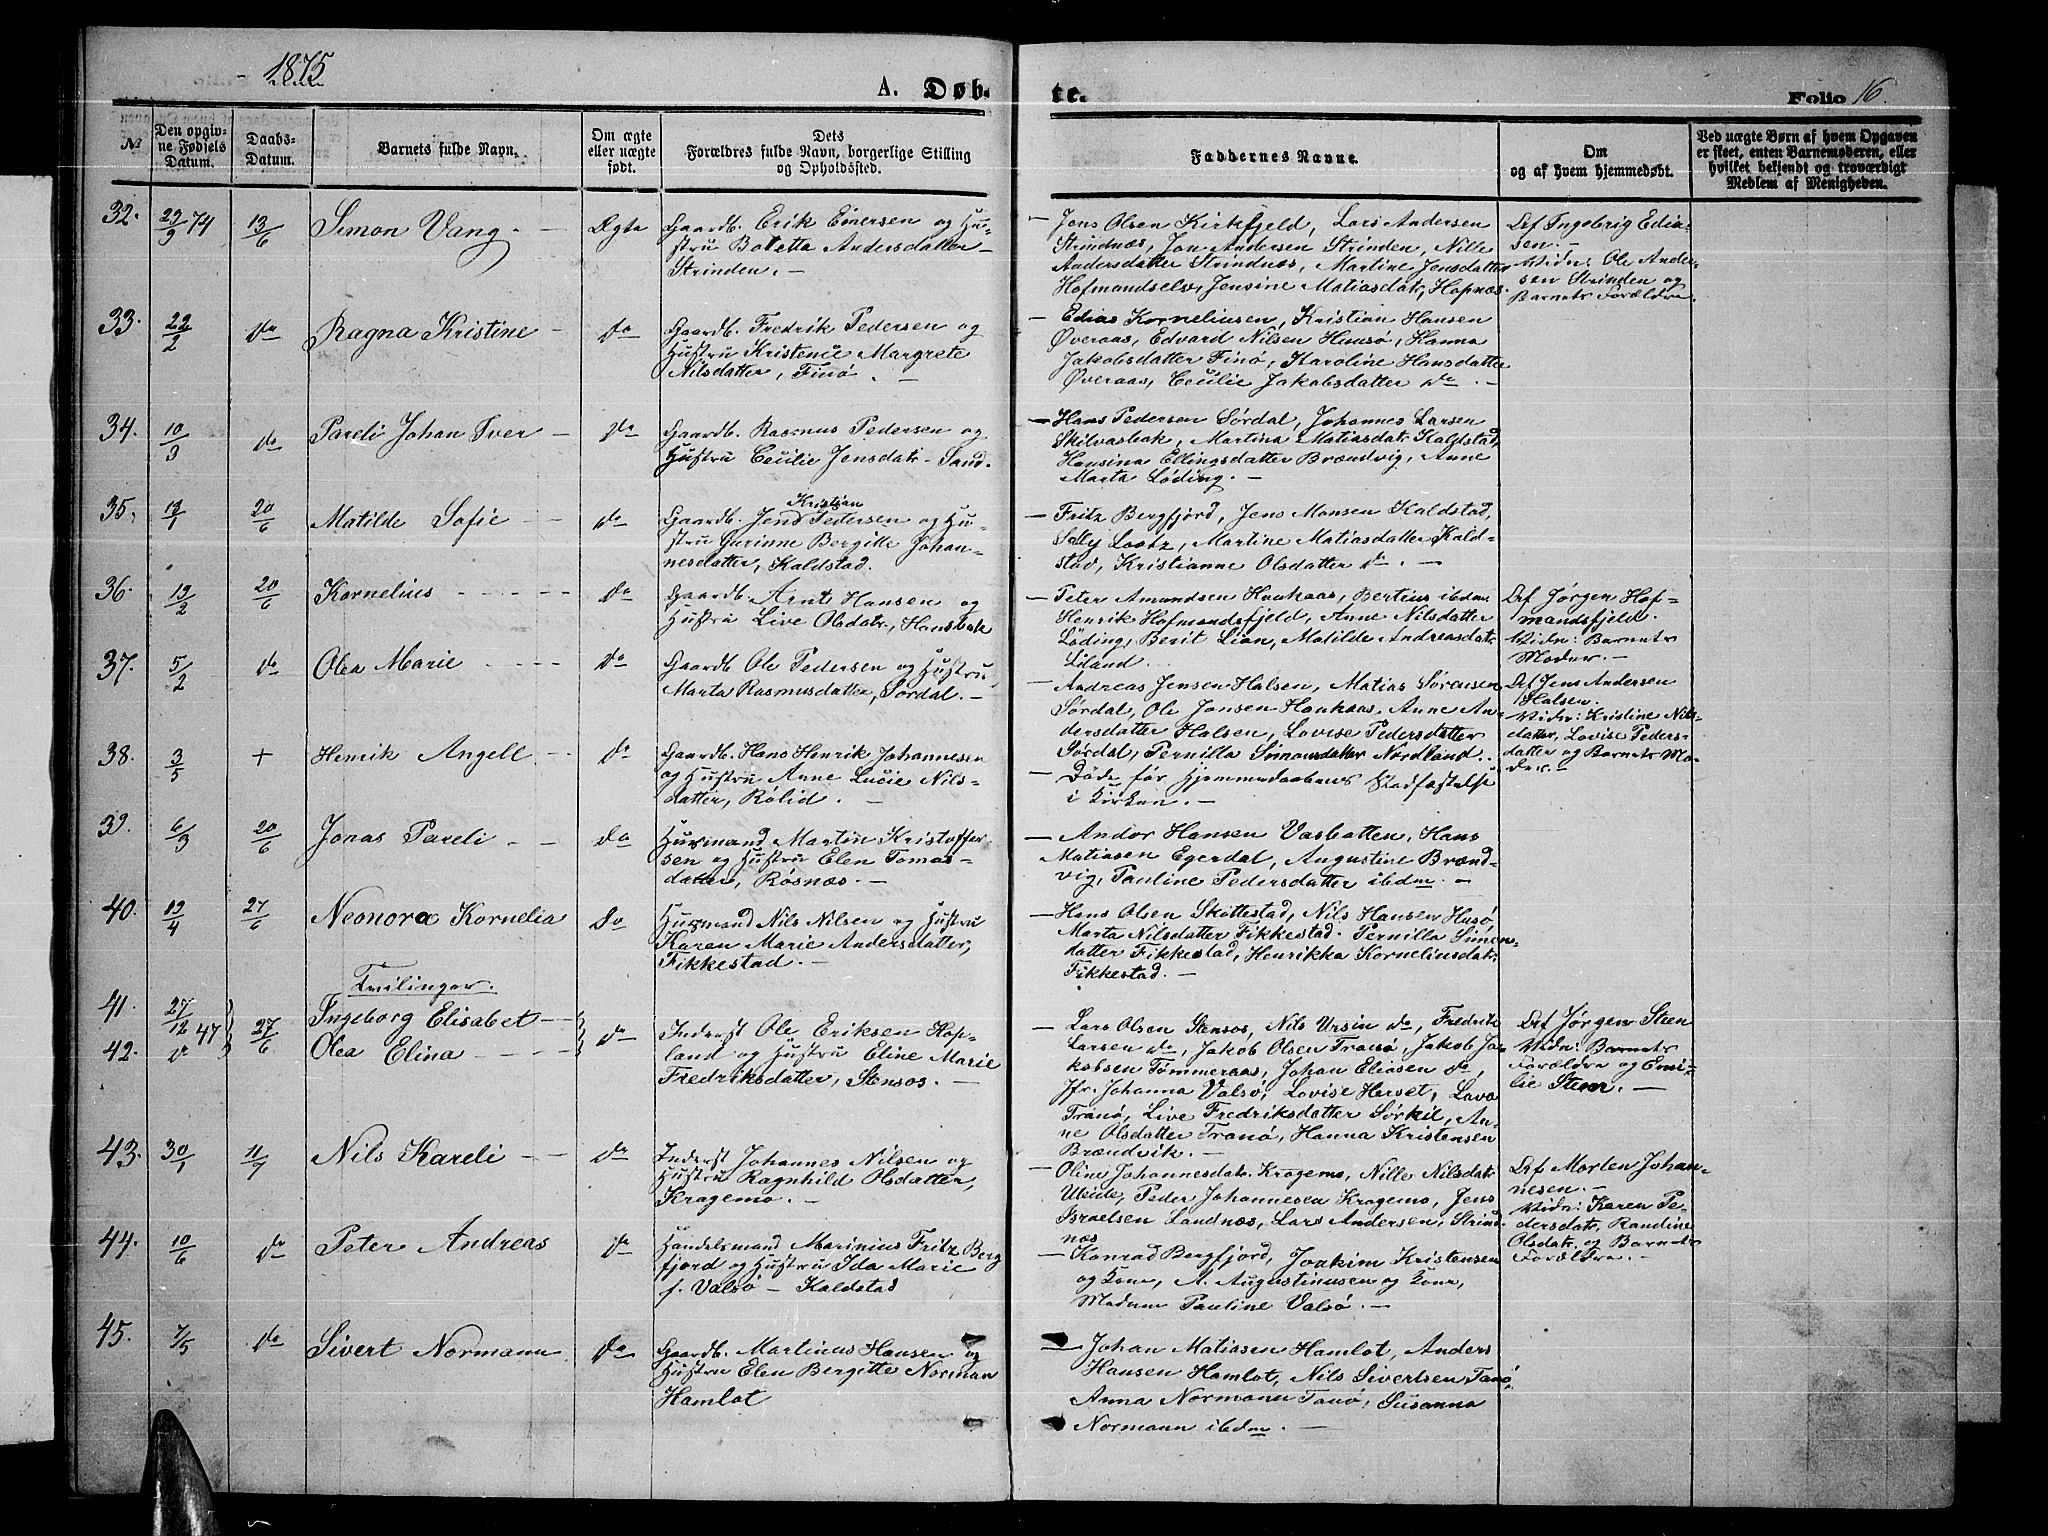 1875
A. Døb-
te.
Folio 16.
No
Den opgiv-
ne Fødsels
Datum.
Daabs-
Datum.
Barnets fulde Navn.
Om ægte
eller uægte
født.
Dets
Forældres fulde Navn, borgerlige Stilling
og Opholdssted.
Faddernes Navne.
Om
og af hvem hjemmedøbt.
Ved uægte Børn af hvem Opgaven
er skeet, enten Barnemoderen, eller
hvilket bekjendt og troværdigt
Medlem af Menigheden.
32.
29/9 74
13/6
Simon Vang
Ægte
Gaardb. Erik Einersen og Hu-
stru Boletta Andersdatter
Strinden.
Jens Olsen Kirkfjeld, Lars Andersen
Strindnæs, Jon Andersen Strinden, Nille
Andersdatter Strindnæs, Martine Jensdatter
Hofmandselv, Jensine Matiasdatr, Hopnæs.
Af Ingebrig Edia-
sen.
Vidn: Ole Ander-
sen Strinden og
Barnets Forældre
33.
22/2
do
Ragna Kristine
do
Gaardb. Fredrik Pedersen og
Hustru Kristence Margrete
Nilsdatter, Finø.
Edias Korneliusen, Kristian Hansen
Øveraas, Edvard Nilsen Husø, Hanna
Jakobsdatter Finø, Karoline Hansdatter
Øveraas, Cecilie Jakobsdatter do.
34.
10/3
do
Pareli Johan Iver
do
Gaardb. Rasmus Pedersen og
Hustru Cecilie Jensdatr. Sand.
Hans Pedersen Sørdal, Johannes Larsen
Skilvasbak, Martina Matiasdatr. Kaldstad,
Hansina Ellingsdatter Brændvig, Anne
Marta Løding.
35.
13/1
20/6
Matilde Sofie
do
Kristian
Gaardb. Jens Pedersen og Hu-
stru Gurinne Bergitte Johan-
nesdatter, Kaldstad.
Fritz Bergfjord, Jens Monsen Kaldstad,
Selly Lootz, Martine Matiasdatter Kald-
stad, Kristianne Olsdatter do.
36.
13/2
20/6
Kornelius
do
Gaardb. Arnt Hansen og
Hustru Live Olsdatr., Hansbak
Peter Amundsen Haukaas, Bertius ibdm.
Henrik Hofmandsfjeld, Anne Nilsdatter
Løding, Berit Lian, Matilde Andreasdatr.
Liland.
Af Jørgen Hof-
mandsfjeld.
Vidn: Barnets
Moder.
37.
5/2
do
Olea Marie
do
Gaardb. Ole Pedersen og Hustru
Marta Rasmusdatter, Sørdal.
Andreas Jensen Halsen, Matias Sørensen
Sørdal, Ole Jonsen Haukaas, Anne An-
dersdatter Halsen, Lovise Pedersdatter
Sørdal, Pernilla Simonsdatter Nordland.
Af Jens Andersen
Halsen.
Vidn: Kristine Nils-
datter, Lovise Peders-
datter og Barnets Mo-
der.
38.
3/5
+
Henrik Angell
do
Gaardb. Hans Henrik Johannesen
og Hustru Anne Lucie Nils-
datter, Rølid.
Døde før Hjemmedaabens Stadfæstelse
i Kirken.
39.
6/3
20/6
Jonas Pareli
do
Husmand Martin Kristoffer-
sen og Hustru Elen Tomas-
datter, Røsnæs.
Andor Hansen Vasbotten, Hans
Matiasen Egerdal, Augustine Brænd-
vig, Pauline Pedersdatter ibdm.
40.
13/4
27/6
Neonora Kornelia
do
Husmand Nils Nilsen og Hustru
Karen Marie Andersdatter,
Fikkestad.
Hans Olsen Skottestad, Nils Hansen Husø
Marta Nilsdatter Fikkestad. Pernilla Simon-
datter Fikkestad, Henrikka Korneliusdatr.
Fikkestad.
Tvilinger.
41.
27/12 47
27/6
Ingeborg Elisabet
42.
do
Olea Elina
do
Inderst Ole Eriksen Hop-
land og Hustru Eline Marie
Fredriksdatter, Stensos.
Lars Olsen Stensos, Nils Ursin do, Fredrik
Larsen do, Jakob Olsen Tranø, Jakob Ja-
kobsen Tømmeraas, Johan Eliasen do,
Jfr. Johanna Valsø, Lovise Herset, Lava
Tranø, Live Fredriksdatter Sørkil, An-
ne Olsdatter Tranø, Hanna Kristensen
Brændvik.
Af Jørgen Steen
Vidn: Barnets
Forældre og Emi-
lie Steen.
43.
30/1
11/7
Nils Kareli
do
Inderst Johannes Nilsen og
Hustru Ragnhild Olsdatter,
Kragemo.
Oline Johannesdatr. Kragemo, Nille Nilsdatr.
Uleide, Peder Johannesen Kragemo, Jens
Israelsen Landnæs, Lars Andersen, Strind-
næs
Af Morten Johan-
nesen.
Vidn: Karen Pe-
dersdatr, Randine
Olsdatr. og Barnets
Forældre.
44.
10/6
do
Peter Andreas
do
Handelsmand Marinius Fritz Berg
fjord og Hustru Ida Marie
f. Valsø - Kaldstad
Konrad Bergfjord, Joakim Kristensen
og Kone, A. Augustinusen og Kone,
Madam Pauline Valsø.
45.
7/5
do
Sivert Normann
do
Gaardb. Martinus Hansen og
Hustru Elen Bergitte Norman
Hamlot
Johan Matiasen Hamlot, Anders
Hansen Hamlot, Nils Sivertsen Tanø,
Anna Normann Tanø, Susanna
Normann ibdm.